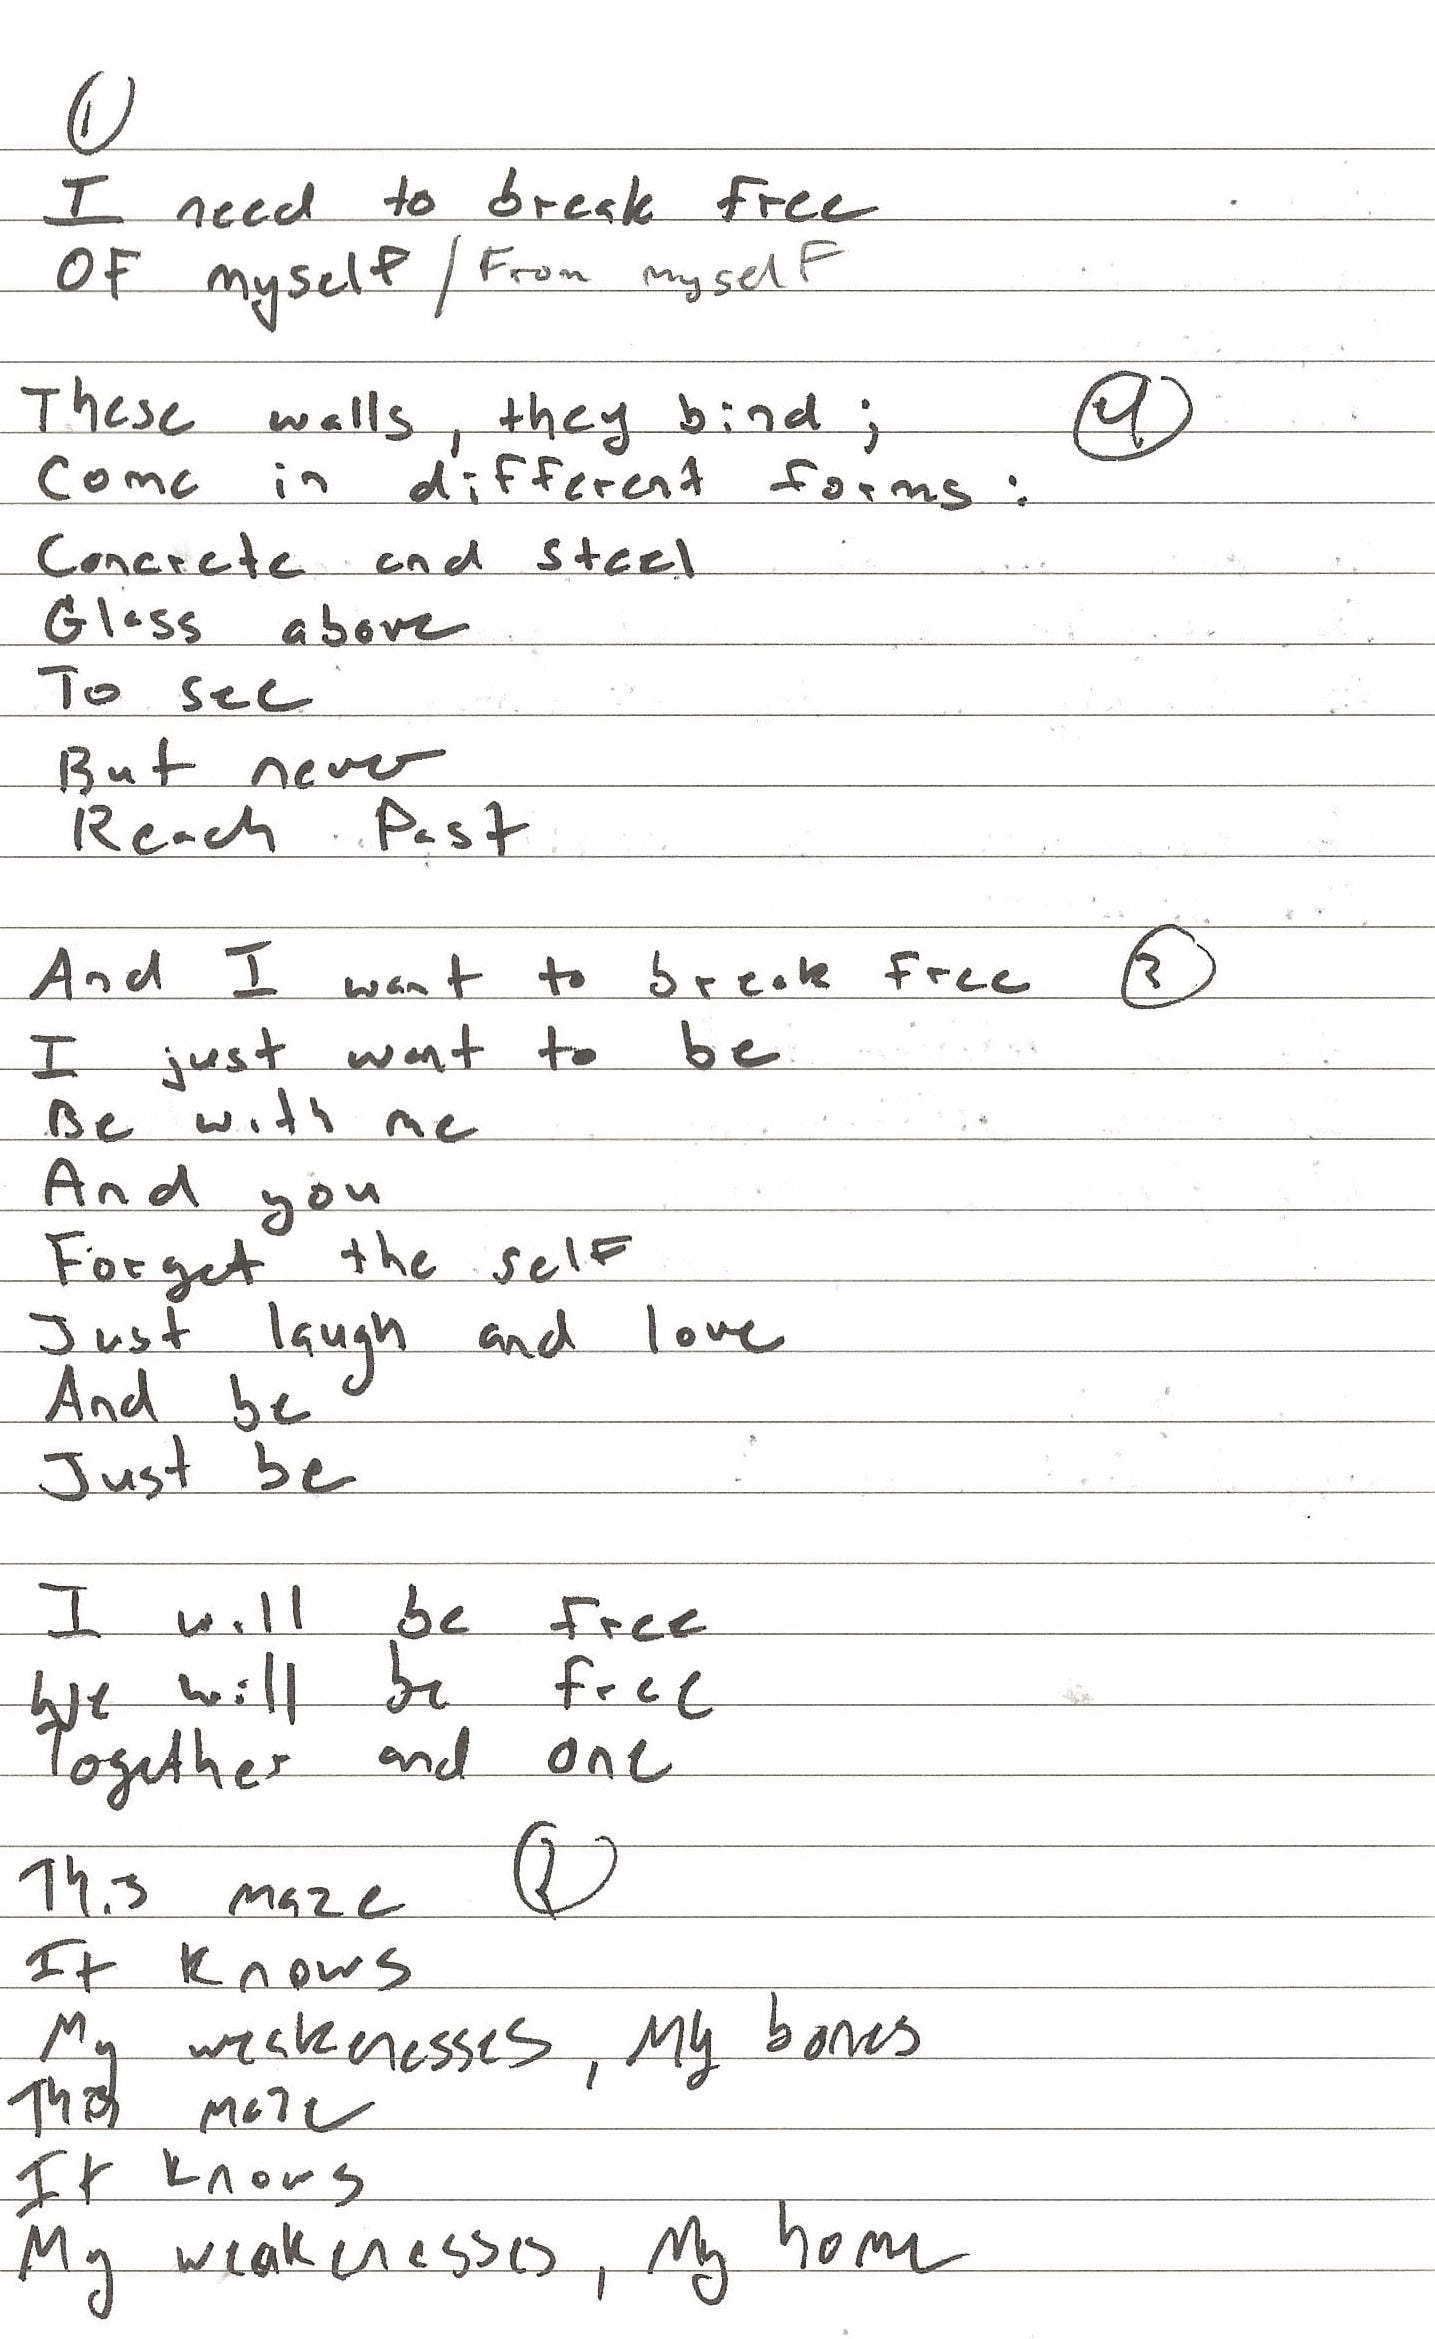 1
I need to break free
OF myself / From myself
These walls, they bind; 4
Come in different forms:
Concrete and steel
Glass above
To see
But never
Reach Past
And I want to break free 3
I just want to be
Be with me
And you
Forget the self
Just laugh and love
And be
Just be
I will be free
We will be free
Together and one
This maze 2
It knows
My weaknesses, My bones
This maze
It knows
My weakenesses, My home